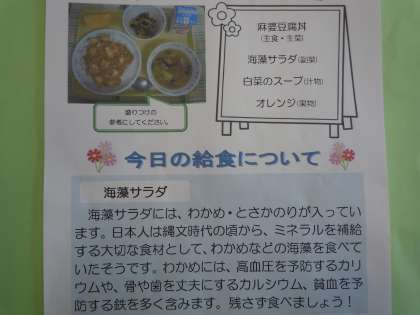 麻婆豆腐丼
(主食・主菜)
海藻サラダ(副菜)
白菜のスープ(汁物)
オレンジ(果物)
盛りつけの
参考にしてください。
今日の給食について
海藻サラダ
海藻サラダには、わかめ・とさかのりが入ってい
ます。日本人は縄文時代の頃から、ミネラルを補給
する大切な食材として、わかめなどの海藻を食べて
いたそうです。わかめには、高血圧を予防するカリ
ウムや、骨や歯を丈夫にするカルシウム、貧血を予
防する鉄を多く含みます。残さず食べましょう！